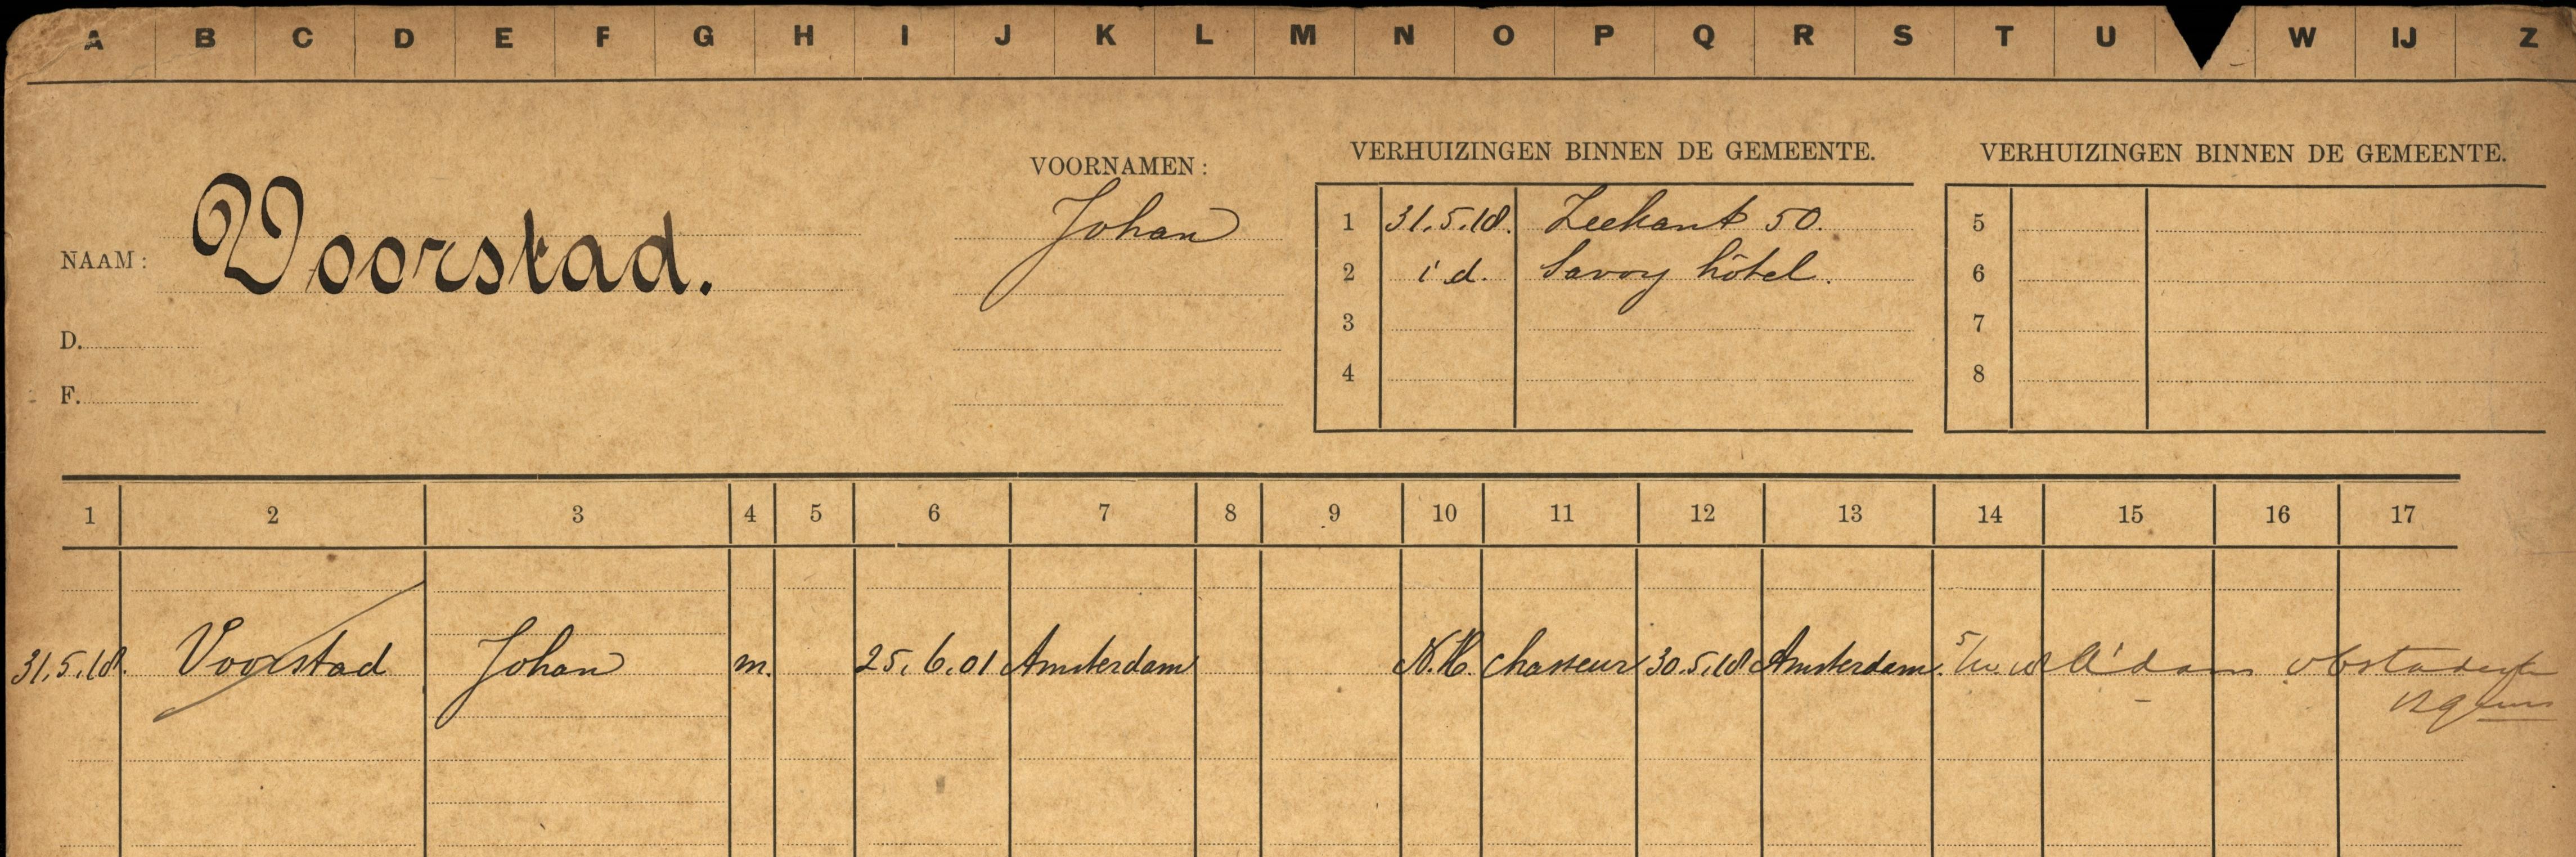 A B C D E F G H I J K L M N O P Q R S T U W IJ Z
NAAM: Voorstad.
D.
F.
VOORNAMEN:
Johan
VERHUIZINGEN BINNEN DE GEMEENTE.
1 31.5.18. Zeekant 50.
2 id. Savoy hôtel.
3
4
VERHUIZINGEN BINNEN DE GEMEENTE.
5
6
7
8
1 2 3 4 5 6 7 8 9 10 11 12 13 14 15 16 17
31.5.18. Voorstad Johan m. 25.6.01 Amsterdam N.H. chasseur 30.5.18 Amsterdam. A'dam